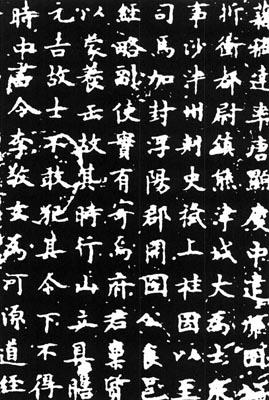 達率唐顯慶中遣邢國
折衝都尉鎮熊津城大為士衆
事沙泮州刺史授上柱國以至
司馬加封浮陽郡開國公食邑
經略副使實有寄焉府君稟質
以蒙養正故其時行山立具瞻
元吉故士不敢犯其令下不得
時中書令李敬玄為河源道經